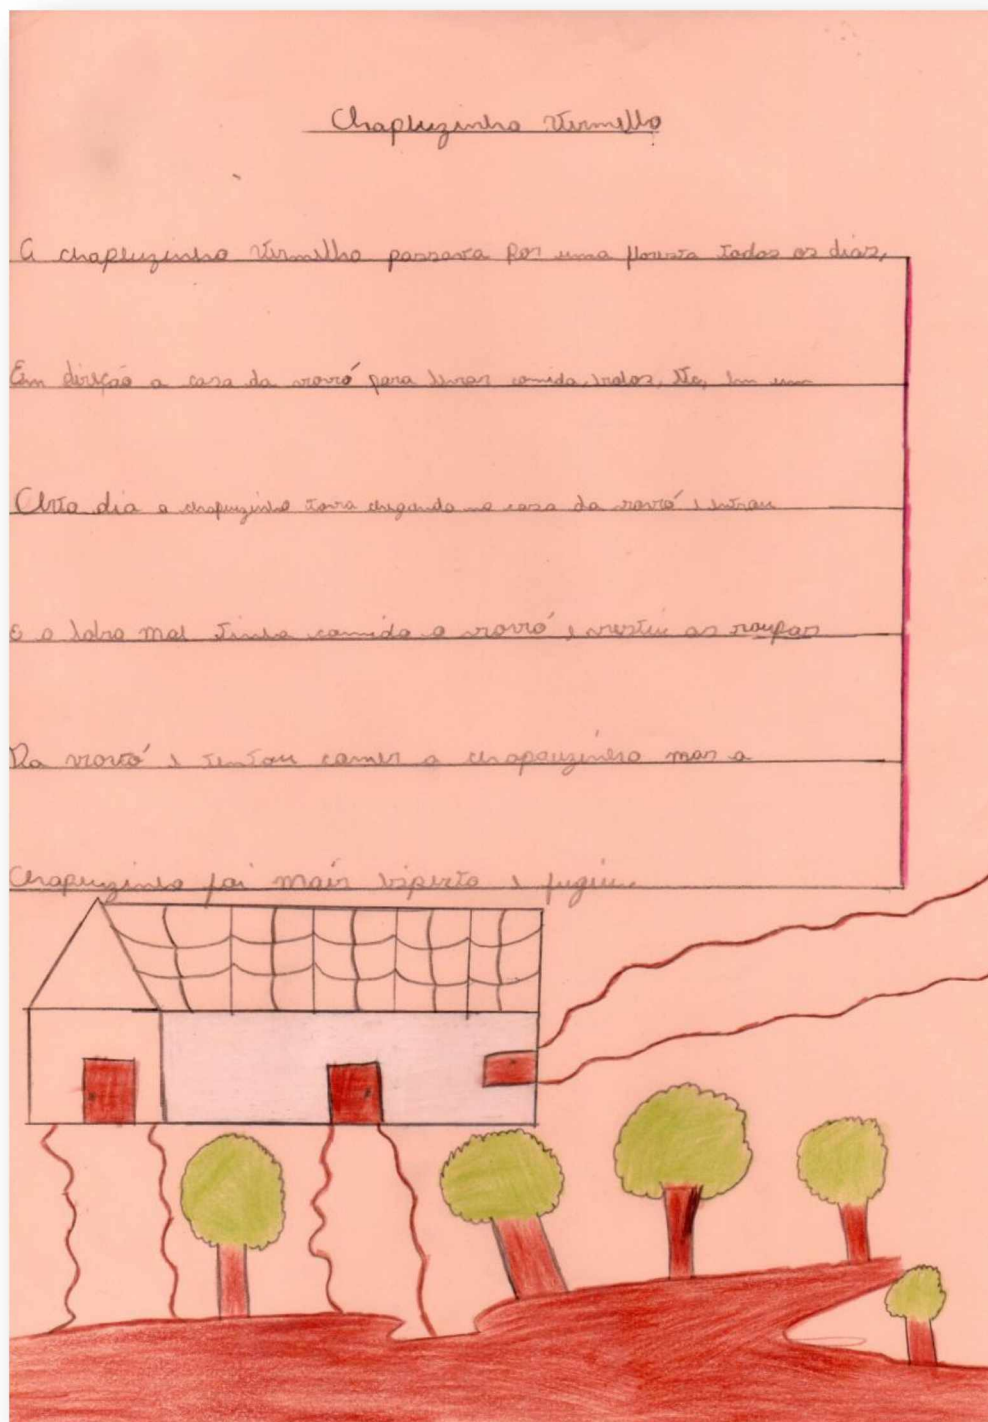 Chapeuzinho Vermelho
A chapeuzinho Vermelho passava Por uma floresta todos os dias,
Em direção a casa da vovó para levar comida, bolos, Etc, Em um
Certo dia a chapeuzinho tava chegando na casa da vovó e entrou
E o lobo mal tinha comido a vovó e vestiu as roupas
Da vovó e tentou comer a chapeuzinho mas a
Chapeuzinho foi mais esperto e fugiu.